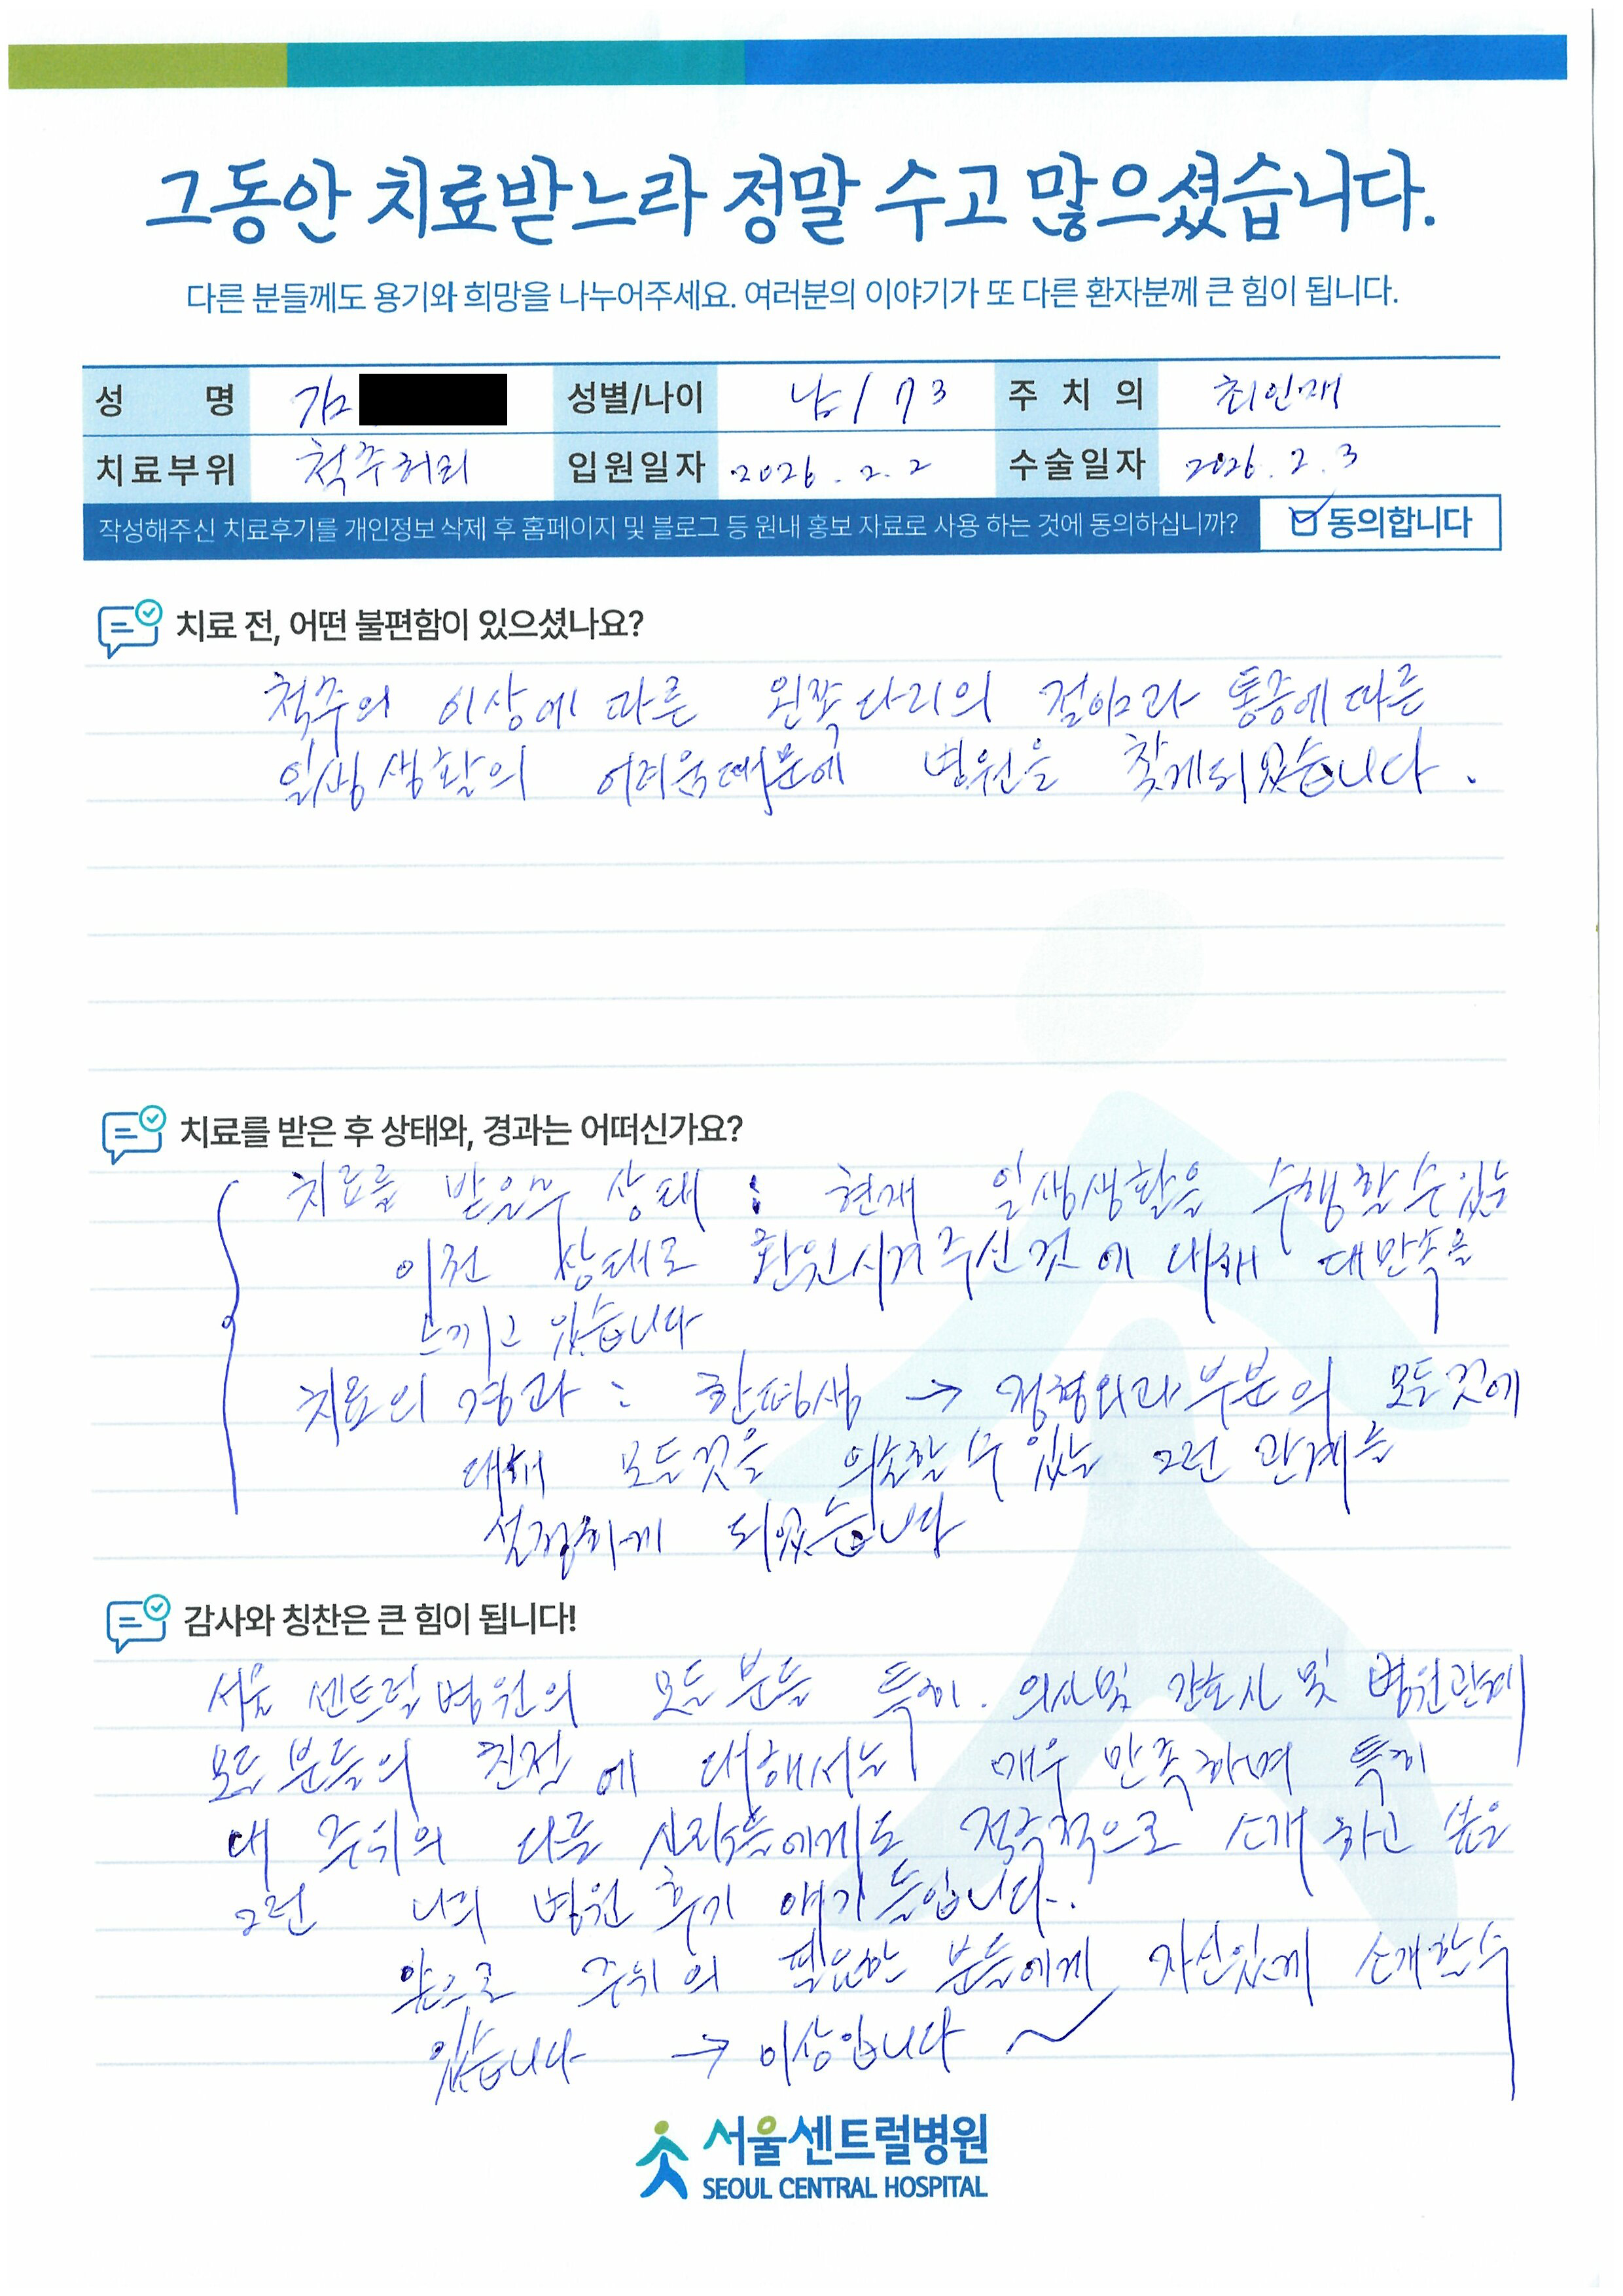 그동안 치료받느라 정말 수고 많으셨습니다.
다른 분들께도 용기와 희망을 나누어주세요. 여러분의 이야기가 또 다른 환자분께 큰 힘이 됩니다.
성 명 김 성별/나이 남 / 73 주 치 의 최인재
치료부위 척주허리 입원일자 2026. 2. 2 수술일자 2026. 2. 3
작성해주신 치료후기를 개인정보 삭제 후 홈페이지 및 블로그 등 원내 홍보 자료로 사용 하는 것에 동의하십니까? 동의합니다
치료 전, 어떤 불편함이 있으셨나요?
척주의 이상에 따른 왼쪽다리의 절임과 통증에 따른
일생생활의 어려움때문에 병원을 찾게되었습니다.
치료를 받은 후 상태와, 경과는 어떠신가요?
치료를 받은후 상태 : 현재 일생생활을 수행할 수 있는
이전 상태로 환원시켜주신것에 대해 대만족을
느끼고 있습니다
치료의 경과 : 한평생 → 정형외과부분의 모든것에
대해 모든것을 의논할 수 있는 그런 관계를
설정하게 되었습니다
감사와 칭찬은 큰 힘이 됩니다!
서울 센트럴병원의 모든분들 특히. 의사및 간호사 및 병원관계
모든분들의 친절에 대해서는 매우 만족하며 특히
내 주위의 다른 사람들에게도 적극적으로 소개하고 싶은
그런 나의 병원 후기 얘기들입니다.
앞으로 주위의 필요한 분들에게 자신있게 소개할수
있습니다 → 이상입니다
서울센트럴병원
SEOUL CENTRAL HOSPITAL